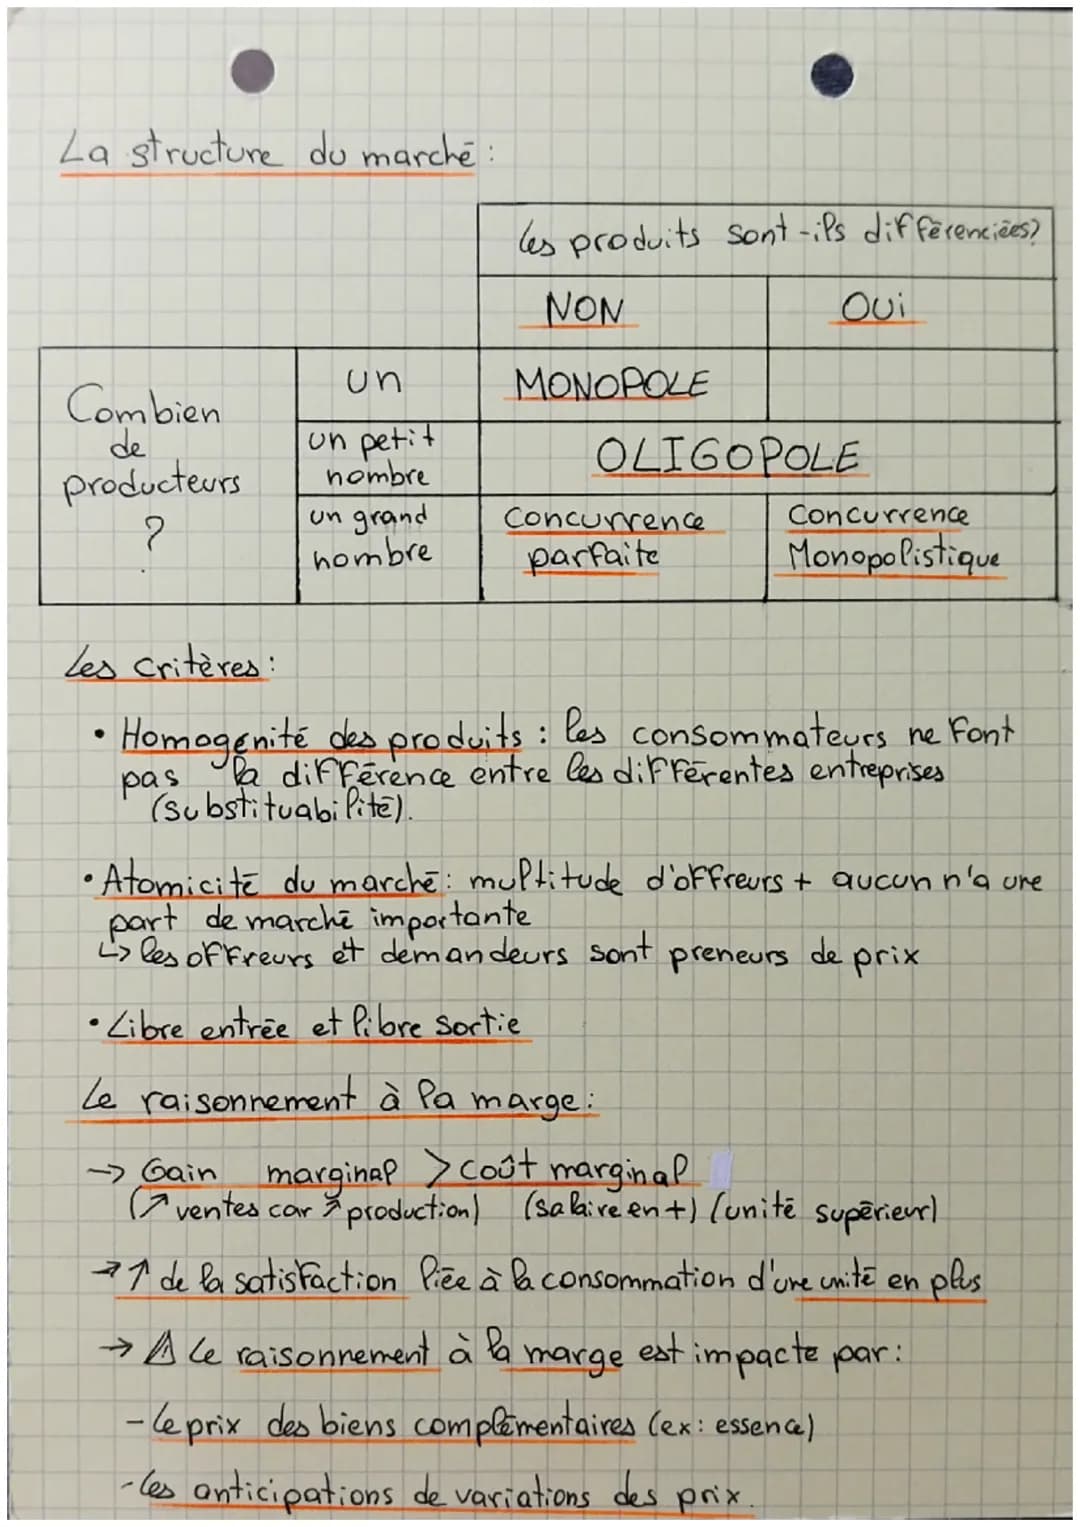 La structure du marché :
Les produits sont-ils différenciées?
NON OUi
Combien de producteurs ?
un MONOPOLE
un petit nombre OLIGOPOLE
un grand nombre Concurrence parfaite Concurrence Monopolistique
Les critères :
• Homogénité des produits : les consommateurs ne font
pas la différence entre les différentes entreprises
(substituabilité).
• Atomicité du marché : multitude d'offreurs + aucun n'a une
part de marché importante
↳ les offreurs et demandeurs sont preneurs de prix
• Libre entrée et libre sortie
Le raisonnement à la marge :
→ Gain marginal > coût marginal
(↗ ventes car ↗ production) (salaire en +) (unité supérieur)
→ ↑ de la satisfaction liée à la consommation d'une unité en plus
→ ⚠ Le raisonnement à la marge est impacte par :
- Le prix des biens complémentaires (ex : essence)
- Les anticipations de variations des prix.